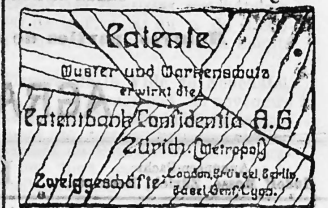 Patente
Muster und Markenschutz
erwirkt die
Patentbank Confidentia A.G
Zürich (Metropol)
Zweiggeschäfte: London, Brüssel, Berlin,
Basel, Genf, Lyon.